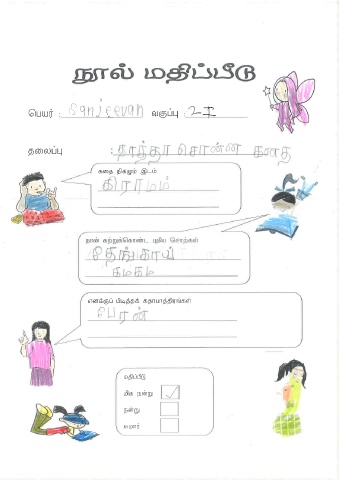 நூல் மதிப்பீடு
பெயர் : sanjeevan வகுப்பு :
தலைப்பு : தாத்தா சொன்ன கதை
கதை நிகழும் இடம்
கிராமம்
நான் கற்றுக்கொண்ட புதிய சொற்கள்
கமகம
எனக்குப் பிடித்தக் கதாபாத்திரங்கள்
பேரன்
மதிப்பீடு
மிக நன்று
நன்று
சுமார்